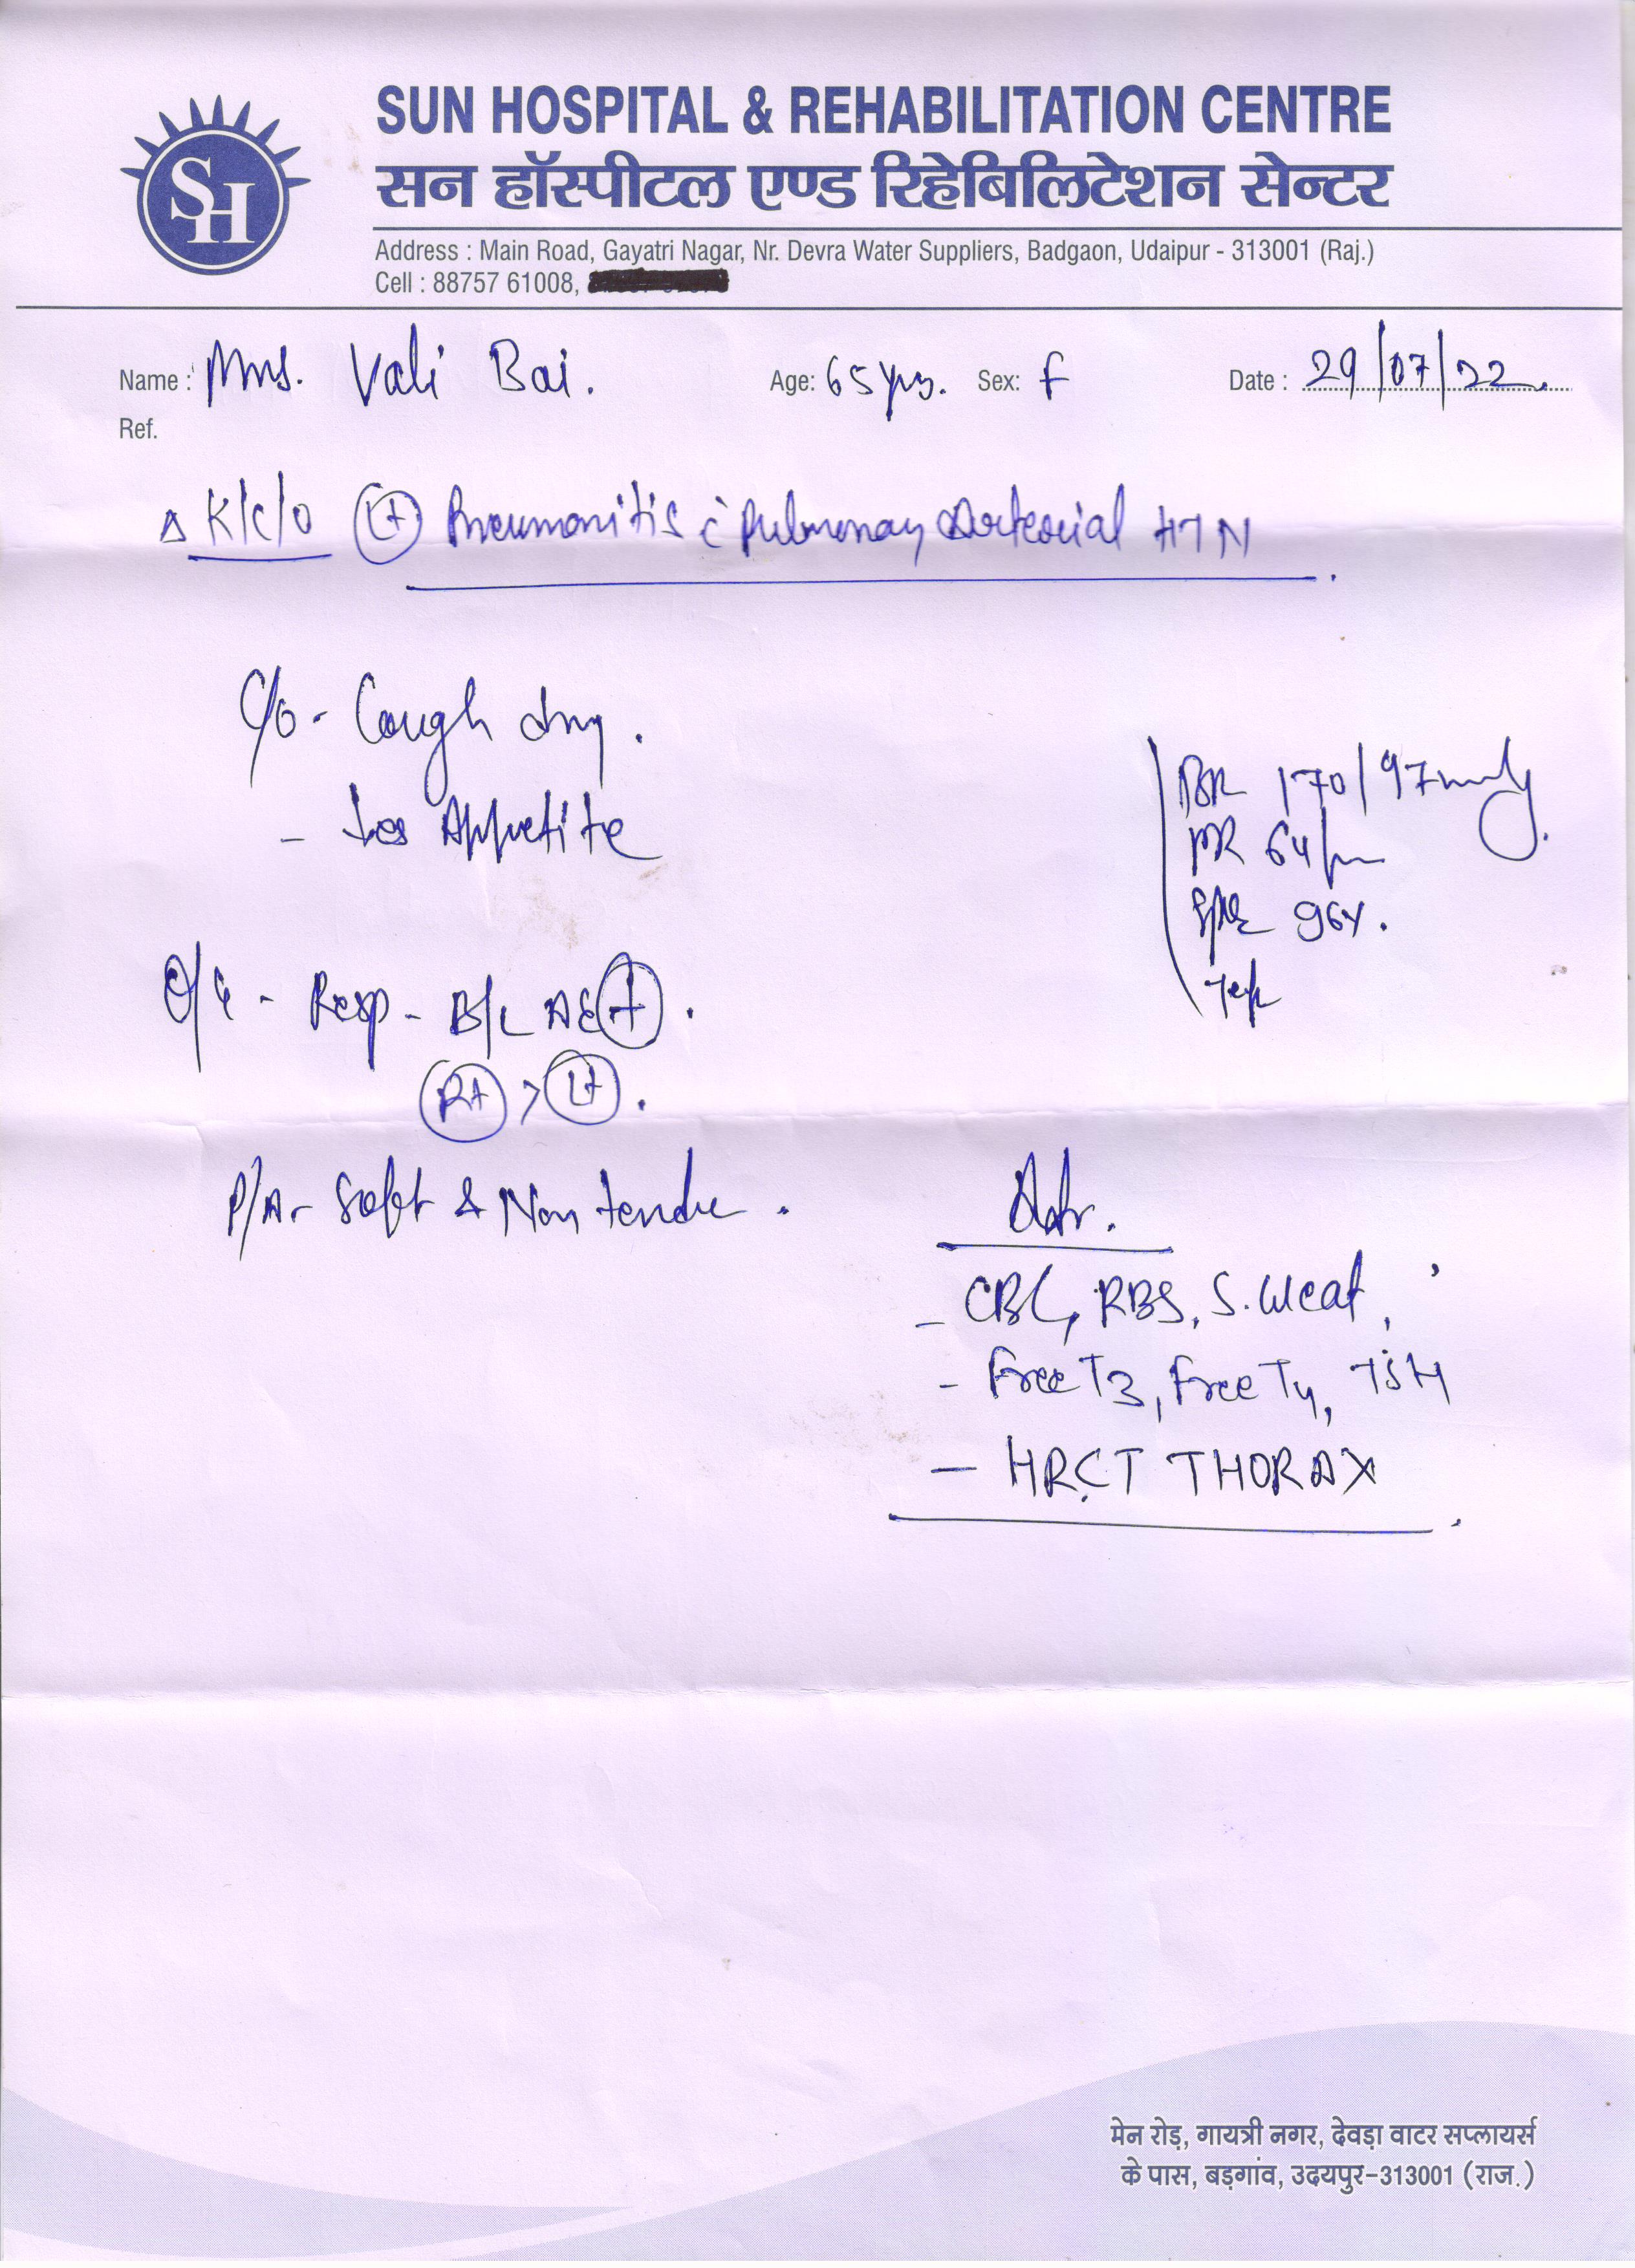 SH
SUN HOSPITAL & REHABILITATION CENTRE
सन हॉस्पीटल एण्ड रिहेबिलिटेशन सेन्टर
Address : Main Road, Gayatri Nagar, Nr. Devra Water Suppliers, Badgaon, Udaipur - 313001 (Raj.)
Cell : 88757 61008,
Name : Mrs. Vali Bai. Age: 65 yrs. Sex: F Date : 29/07/22.
Ref.
Δ K/c/o Lt Pneumonitis c̄ Pulmonay Arterial HTN
C/o - Cough dry.
- ↓es Appetite
170/97 mmHg.
PR 64/m
SpO2 96%.
Temp
O/E - Resp - B/L AE +.
Rt > Lt.
P/A - Soft & Non tender.
Adv.
- CBC, RBS, S. Ucat,
- Free T3, Free T4, TSH
- HRCT THORAX
मेन रोड़, गायत्री नगर, देवड़ा वाटर सप्लायर्स
के पास, बड़गांव, उदयपुर-313001 (राज.)